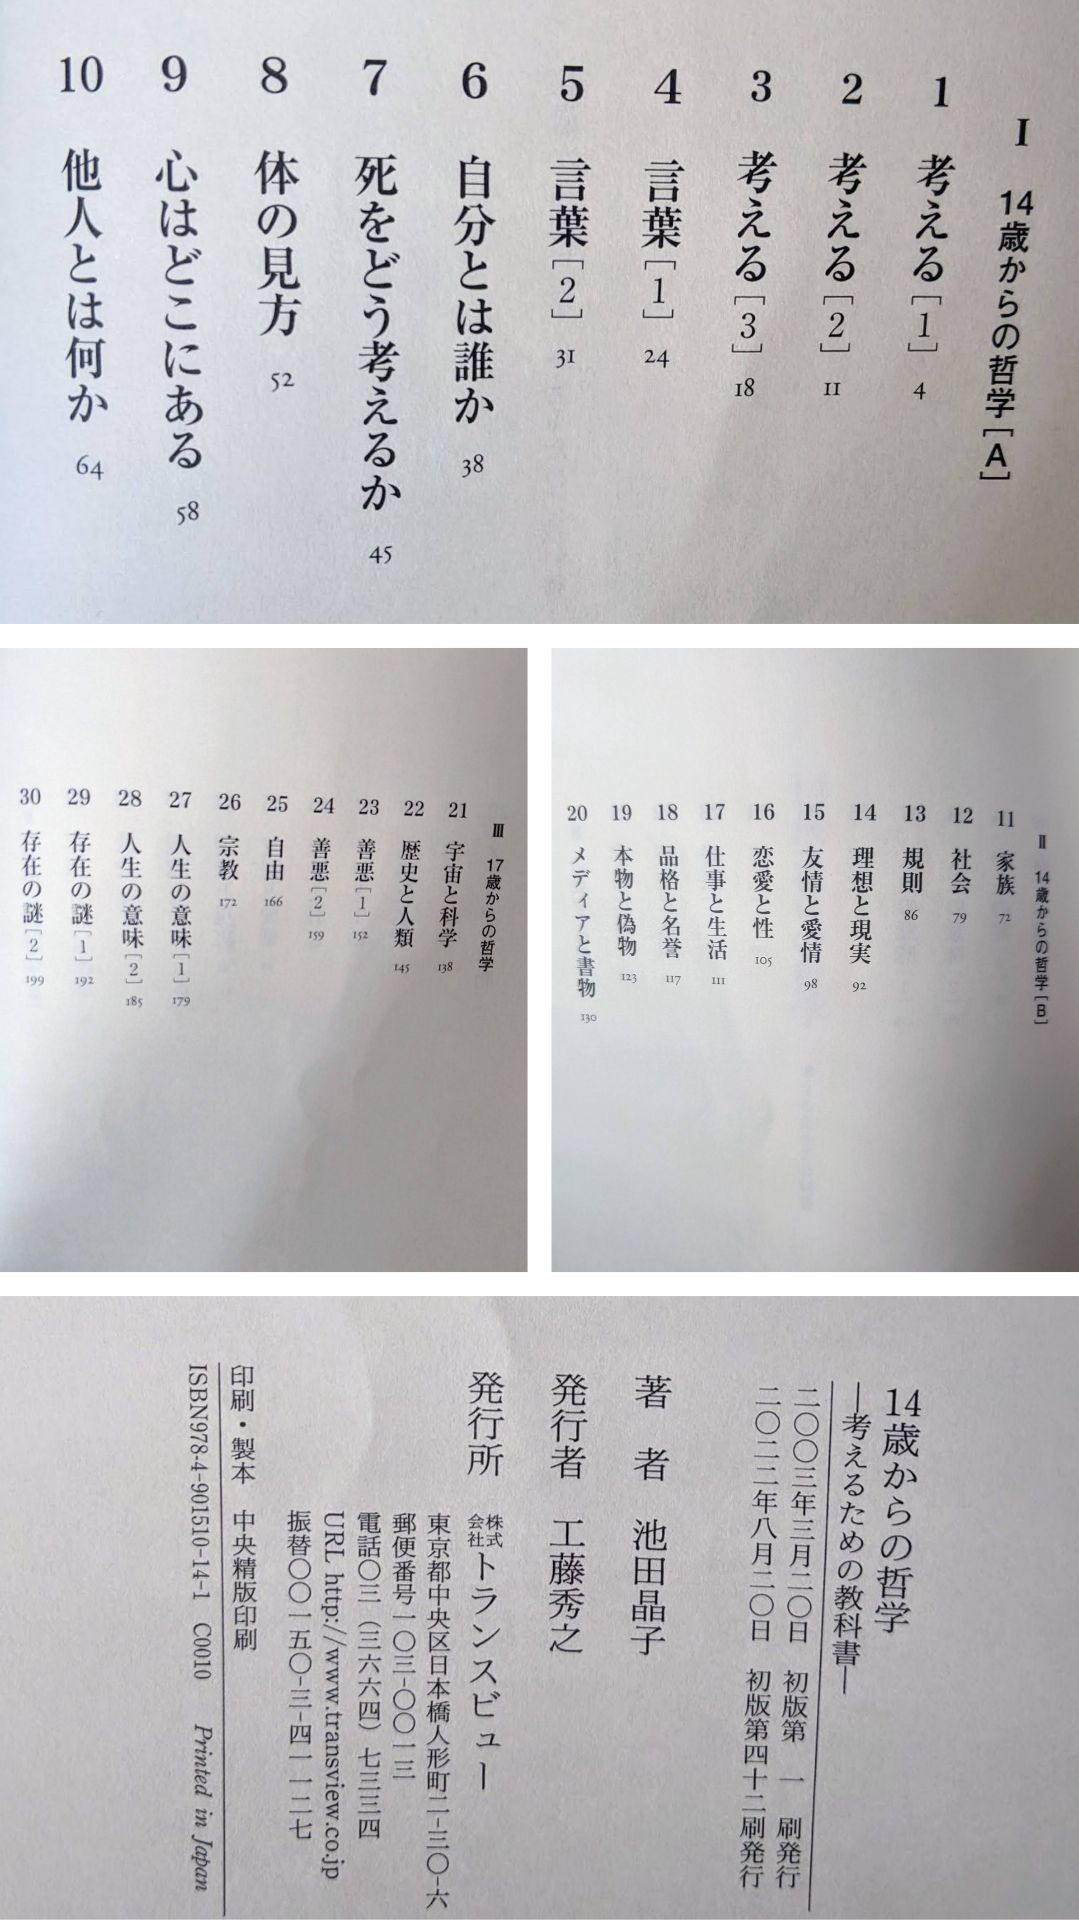 I 14歳からの哲学［A］
1 考える［1］ 4
2 考える［2］ 11
3 考える［3］ 18
4 言葉［1］ 24
5 言葉［2］ 31
6 自分とは誰か 38
7 死をどう考えるか 45
8 体の見方 52
9 心はどこにある 58
10 他人とは何か 64
II 14歳からの哲学［B］
11 家族 72
12 社会 79
13 規則 86
14 理想と現実 92
15 友情と愛情 98
16 恋愛と性 105
17 仕事と生活 111
18 品格と名誉 117
19 本物と偽物 123
20 メディアと書物 130
III 17歳からの哲学
21 宇宙と科学 138
22 歴史と人類 145
23 善悪［1］ 152
24 善悪［2］ 159
25 自由 166
26 宗教 172
27 人生の意味［1］ 179
28 人生の意味［2］ 185
29 存在の謎［1］ 192
30 存在の謎［2］ 199
14歳からの哲学
―考えるための教科書―
二〇〇三年三月二〇日 初版第 一 刷発行
二〇二二年八月二〇日 初版第四十二刷発行
著 者 池田晶子
発行者 工藤秀之
発行所 株式会社トランスビュー
東京都中央区日本橋人形町二-三〇-六
郵便番号一〇三-〇〇一三
電話〇三（三六六四）七三三四
URL http://www.transview.co.jp
振替〇〇一五〇-三-四一一二七
印刷・製本 中央精版印刷
ISBN978-4-901510-14-1 C0010 Printed in Japan